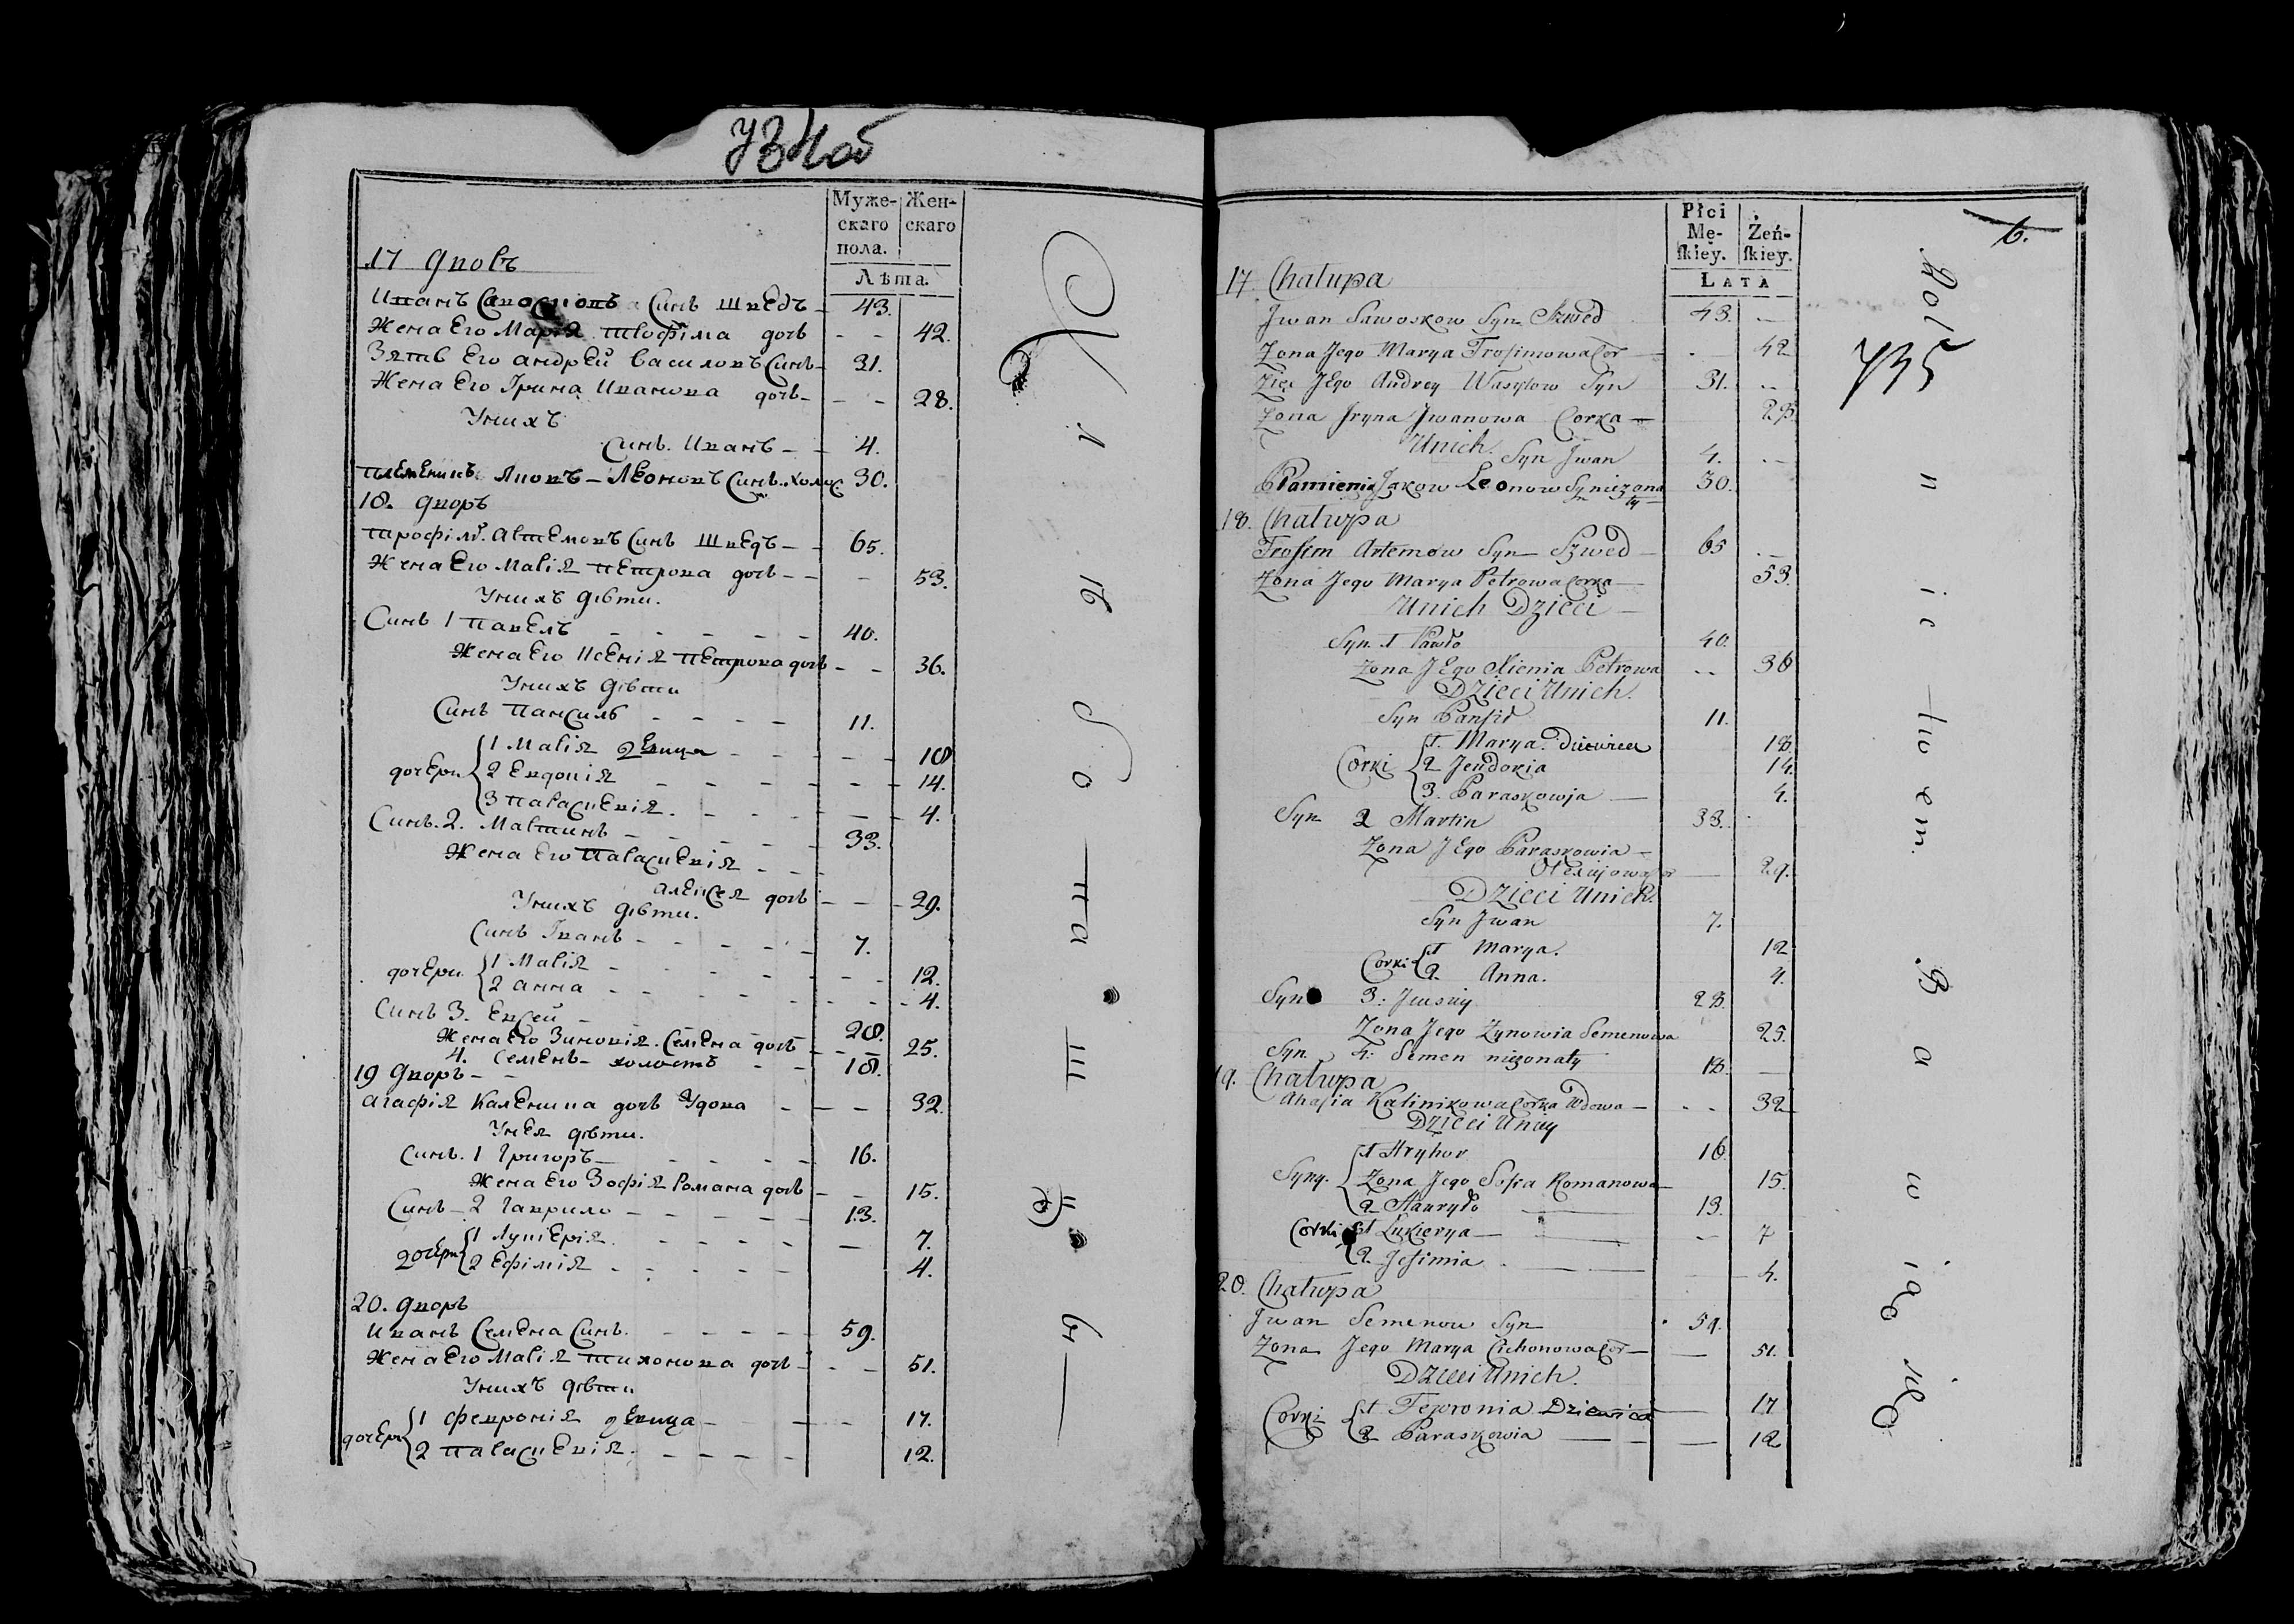 Муже-
скаго
пола.
Жен-
скаго
Лѣта.
17 дворъ
Иванъ синъ Шведъ 43.
Жена Его Мария Трофіма дочь 42.
Зять Его андрей василовъ Синъ 31.
Жена Его Ірина Иванова дочь 28.
У нихъ
Синъ Иванъ 4.
племеникъ Яковъ Леоновъ Синъ холос 30.
18. дворъ
трофімъ артемовъ Синъ Шведъ 65.
Жена Его Марія петрова дочь 53.
У нихъ дѣти.
Синъ 1 павелъ 40.
Жена Его Ксенія петрова дочь 36.
У нихъ дѣти
Синъ пансилъ 11.
дочери 1 Марія девица 18
2 Евдокія 14.
3 параскевія 4.
Синъ. 2. Мартинъ 33.
Жена Его параскевія
алексея дочь 29.
У нихъ дѣти.
Синъ Іванъ 7.
дочери 1 Марія 12.
2 анна 4.
Синъ 3. Евсей 28.
Жена Его Зиновія Семена дочь 25.
4. Семенъ холостъ 18.
19 дворъ
агафія Каленика дочь Удова 32.
У нея дѣти.
Синъ. 1 Григоръ 16.
Жена Его Зофія Романа дочь 15.
Синъ 2 Гаврило 13.
дочери 1 Лукерія 7.
2 Ефімія 4.
20. дворъ
Иванъ Семена Синъ. 59.
Жена Его Марія тихонова дочь 51.
У нихъ дѣти
дочери 1 февронія девица 17.
2 параскевія. 12.
6.
Płci
Mę-
skiey.
Żeń-
skiey.
LATA
17 Chałupa
Jwan Sawoskow Syn Szwed 43.
Zona Jego Marya Trofimowa Cor 42
Zięc JEgo Andrey Wasylow Syn 31.
Zona Jryna Jwanowa Corka 28
Unich.
Syn Jwan 4.
Plamienię Jakow Leonow Syn niezona
ty 30.
18. Chałupa
Trofim Artemow Syn Szwed 65
Zona Jego Marya Petrowa Corka 53.
Unich Dzieci
Syn 1 Pawło 40.
Zona JEgo Xienia Petrowa 36
Dzieci Unich.
Syn Pansił 11.
Corki 1. Marya. Dziewica 18.
2 Jeudokia 14.
3. Paraskowja 4.
Syn 2 Martin 33.
Zona JEgo Paraskowia
Olexijowa Cor 29.
Dzieci Unich.
Syn Jwan 7.
Corki 1 Marya. 12
2. Anna. 4.
Syn 3: Jwsiy 28.
Zona Jego Zynowia Semenowa 25.
Syn 4: Semen niezonaty 18.
19. Chałupa
Ahafia Kalinikowa Corka Wdowa 32
Dzieci Uniey
Syny. 1 Hryhor 16
Zona Jego Sofia Romanowa 15.
2 Hawryło 13.
Corki 1 Lukierya 7
2. Jefimia 4.
20. Chałupa
Jwan Semenow Syn 59.
Zona Jego Marya Cichonowa Cor 51.
Dzieci Unich.
Corki 1 Fewronia Dziewica 17
2 Paraskowia 12